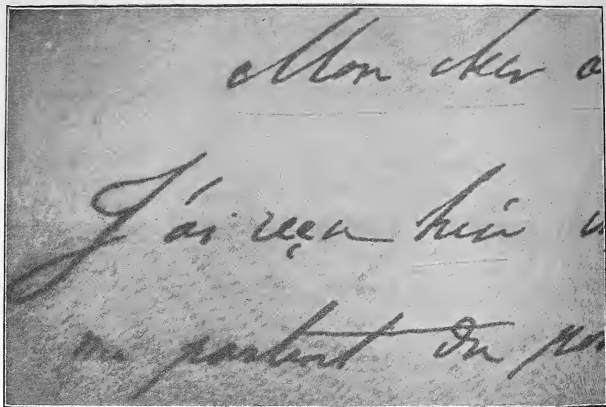 Mon cher a
J'ai reçu hier
me parlent du